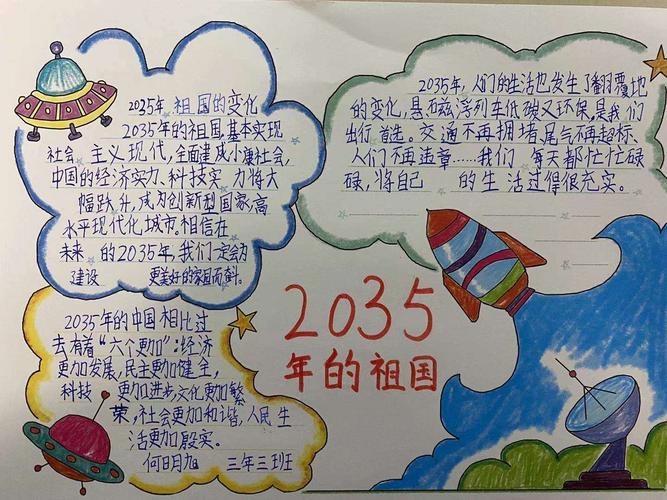 2035年祖国的变化
2035年的祖国,基本实现
社会 主义现代,全面建成小康社会,
中国的经济实力、科技实 力将大
幅跌升,成为创新型国家,高
水平现代化城市。相信在
未来 的2035年,我们一定会为
建设 更美好的家园而创。
2035年,人们的生活也发生了翻覆地
的变化,悬而磁浮列车低碳又环保,是我们
出行首选。交通不再拥堵,尾气不再超标、
人们不再违章……我们 每天都忙忙碌
碌,将自己 的生活过得很充实。
2035
年的祖国
2035年的中国相比过
去有着“六个更加”:经济
更加发展,民主更加健全,
科技 更加进步,文化更加繁
荣,社会更加和谐,人民生
活更加殷实。
何日月旭 三年三班